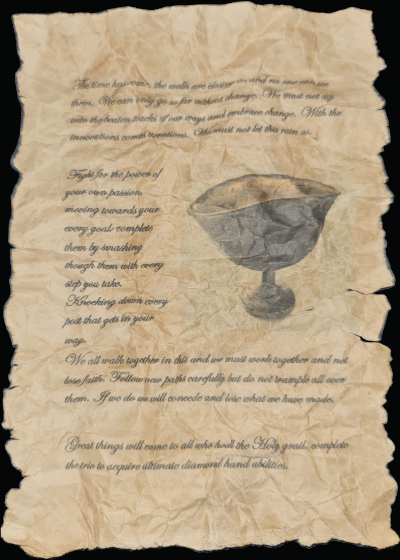 The time has come, the walls are closer and no one can see
them. We can only go so far without change. We must not sip
into the beaten tracks of our ways and embrace change. With the
innovations comes iterations. We must not let this ruin us.
Fight for the power of
your own passion
moving towards your
every goal, complete
them by smashing
though them with every
step you take.
Knocking down every
post that gets in your
way.
We all walk together in this and we must work together and not
lose faith. Follow new paths carefully but do not trample all over
them. If we do we will concede and lose what we have made.
Great things will come to all who hodl the Holy grail, complete
the trio to acquire ultimate diamond hand abilities.